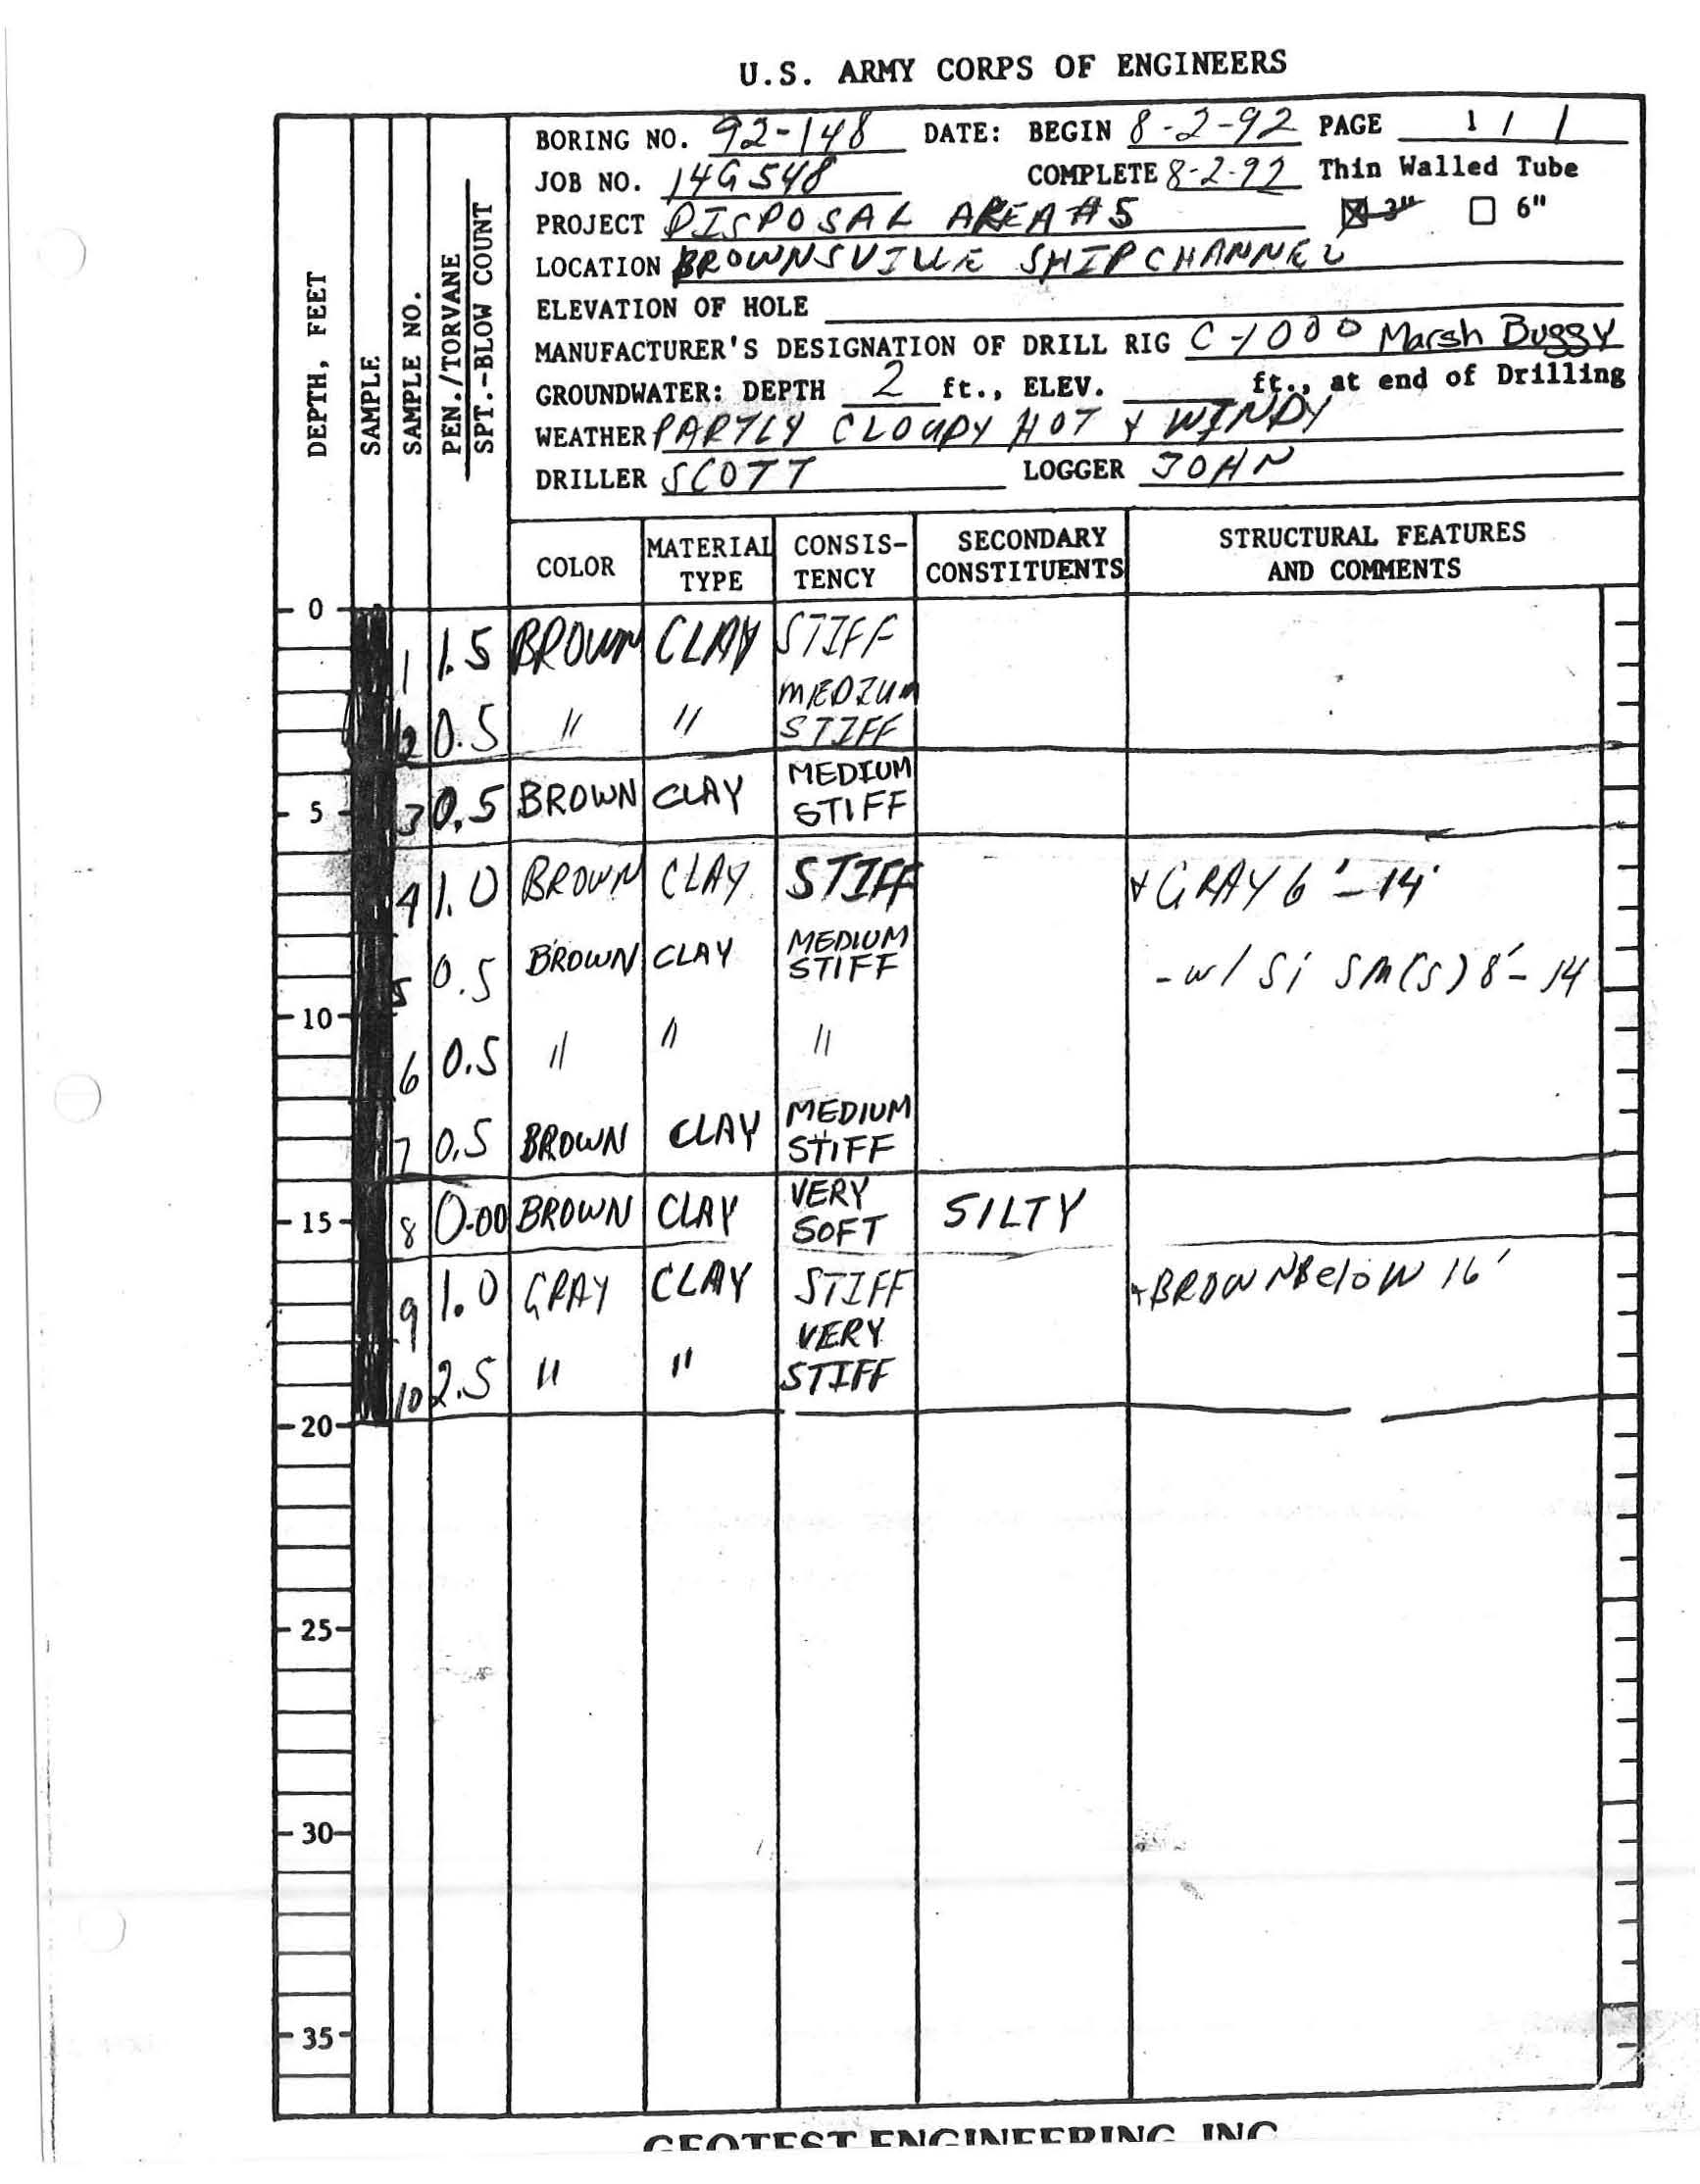 U.S. ARMY CORPS OF ENGINEERS
BORING NO. 92-148 DATE: BEGIN 8-2-92 PAGE 1 / 1
JOB NO. 14G548 COMPLETE 8-2-92 Thin Walled Tube
PROJECT DISPOSAL AREA #5 ☒ 3" ☐ 6"
LOCATION BROWNSVILLE SHIP CHANNEL
ELEVATION OF HOLE
MANUFACTURER'S DESIGNATION OF DRILL RIG C-1000 Marsh Buggy
GROUNDWATER: DEPTH 2 ft., ELEV. ft., at end of Drilling
WEATHER PARTLY CLOUDY HOT & WINDY
DRILLER SCOTT LOGGER JOHN
DEPTH, FEET
SAMPLE
SAMPLE NO.
PEN./TORVANE
SPT.-BLOW COUNT
COLOR
MATERIAL
TYPE
CONSIS-
TENCY
SECONDARY
CONSTITUENTS
STRUCTURAL FEATURES
AND COMMENTS
0
1 1.5 BROWN CLAY STIFF
MEDIUM
2 0.5 " " STIFF
MEDIUM
5 3 0.5 BROWN CLAY STIFF
4 1.0 BROWN CLAY STIFF & GRAY 6'-14'
MEDIUM
5 0.5 BROWN CLAY STIFF - w/ Si SM(S) 8'-14
10
6 0.5 " " "
MEDIUM
7 0.5 BROWN CLAY STIFF
VERY
15 8 0.00 BROWN CLAY SOFT SILTY
9 1.0 GRAY CLAY STIFF + BROWN Below 16'
VERY
10 2.5 " " STIFF
20
25
30
35
GEOTEST ENGINEERING INC